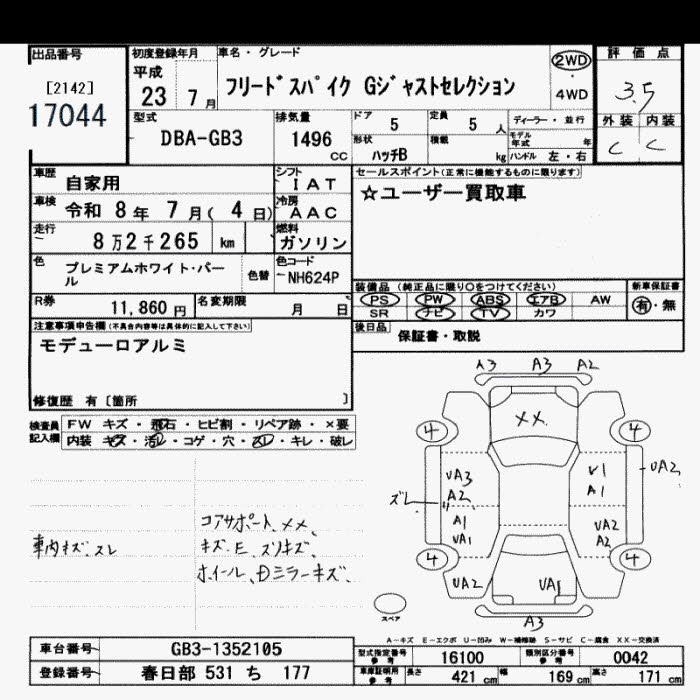 出品番号
[2142]
17044
初度登録年月
平成
23 7月
車名・グレード
フリードスパイク Gジャストセレクション
2WD
4WD
評価点
3.5
外装 内装
C C
型式
DBA-GB3
排気量
1496
CC
ドア 5
定員 5 人
形状 ハッチB
積載 kg
ディーラー・並行
モデル年式 年
ハンドル 左・右
車歴 自家用
シフト IAT
車検 令和 8年 7月( 4日)
冷房 AAC
走行 8万2千265 km
燃料 ガソリン
色 プレミアムホワイト・パール
色替
色コード NH624P
R券 11,860円
名変期限 月 日
セールスポイント(正常に機能するものに限ります)
☆ユーザー買取車
装備品(純正品に限り○をつけてください)
PS PW ABS エアB AW
SR ナビ TV カワ
新車保証書
有・無
後日品 保証書・取説
注意事項申告欄(不具合内容等は具体的に記入して下さい)
モデューロアルミ
修復歴 有〔箇所 〕
検査員記入欄
FW キズ・飛石・ヒビ割・リペア跡・×要
内装 キズ・汚レ・コゲ・穴・スレ・キレ・破レ
車内キズ、スレ
コアサポート、××、
キズ、E、スリキズ、
ホイール、Dミラーキズ、
A3 A3 A2
××
4 4
UA3
A2
ズレ
A1
UA1
V1
A1
UA2
UA2
A2
4 4
UA2
UA1
A3
スペア
A-キズ E-エクボ U-凹み W-補修跡 S-サビ C-腐食 XX-交換済
車台番号 GB3-1352105
登録番号 春日部 531 ち 177
型式指定番号 参考 16100
類別区分番号 参考 0042
車庫証明用 参考 長さ 421 cm 幅 169 cm 高さ 171 cm